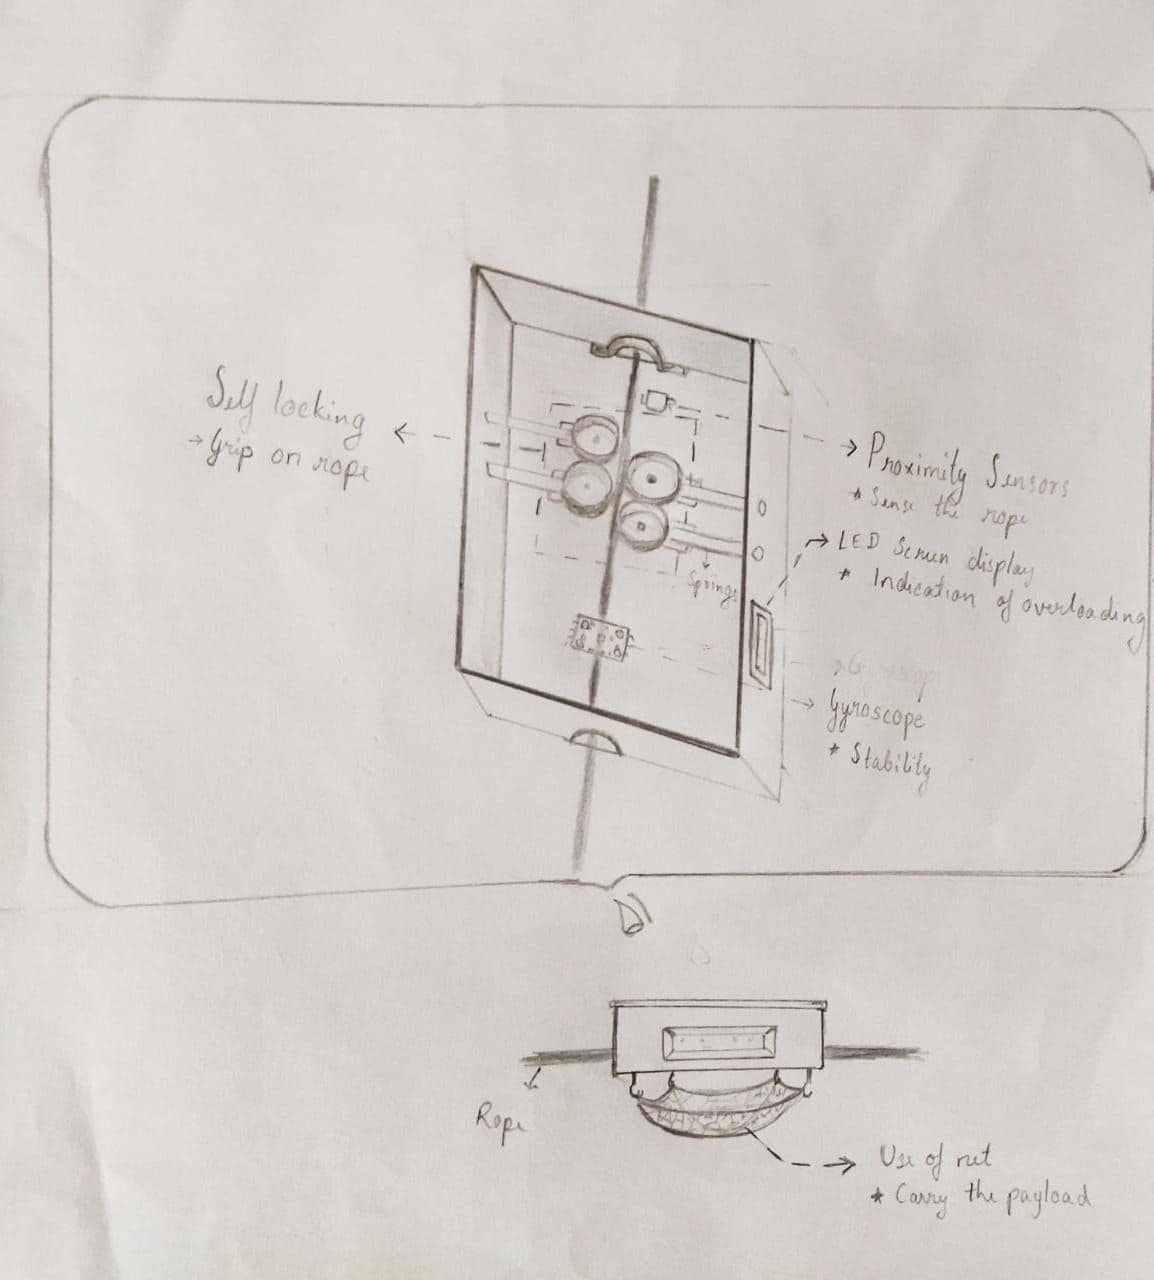 Self locking
→ Grip on rope
Proximity Sensors
* Sense the rope
LED Screen display
* Indication of overloading
Springs
Gyroscope
* Stability
Rope
Use of net
* Carry the payload